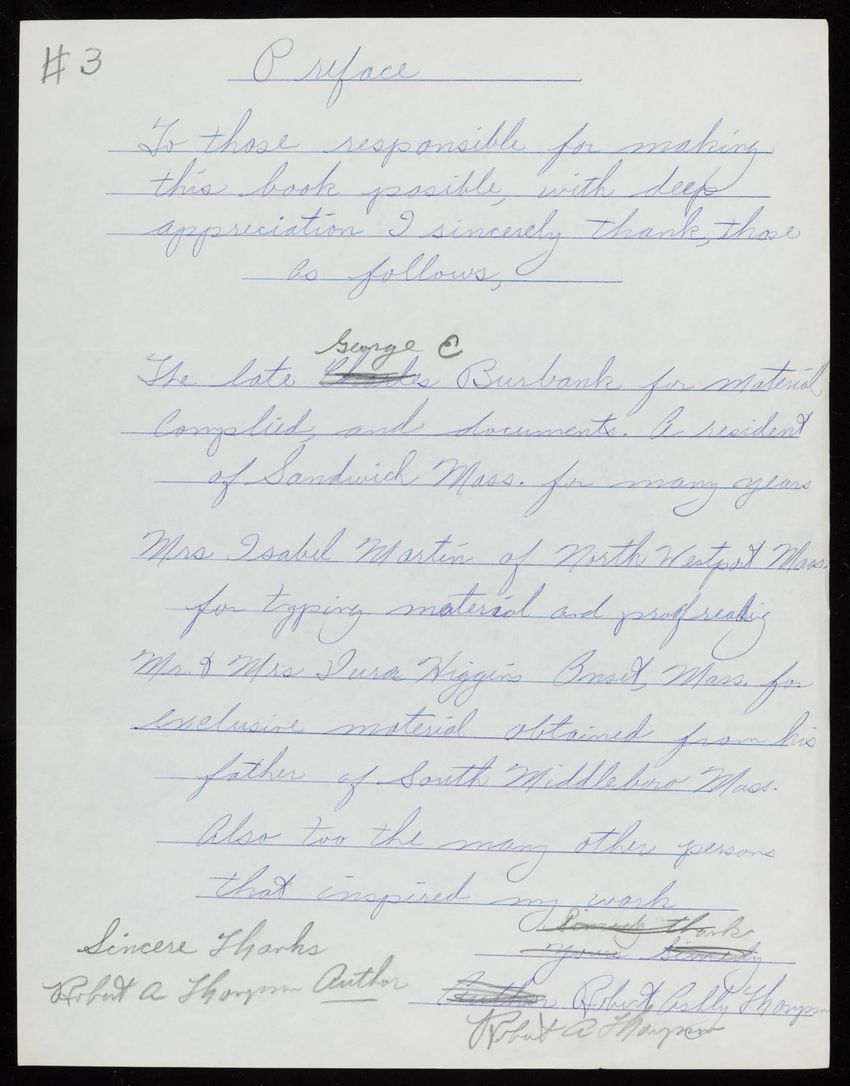 #3
Preface
To those responsible for making
this book posible, with deep
appreciation I sincerely thank, those
as follows,
George E
The late Charles Burbank for material
Complied, and documents. A resident
of Sandwich Mass. for many years
Mrs Isabel Martin of North Westport Mass.
for typing material and proof reading
Mr. & Mrs Higgins Onset, Mass. for
exclusive material obtained from his
father of South Middleboro Mass.
Also too the many other persons
that inspired my work
thank
Sincere Thanks
Yours
Robert A Thompson Author
Author Robert Ashley Thompson
Robert A Thompson